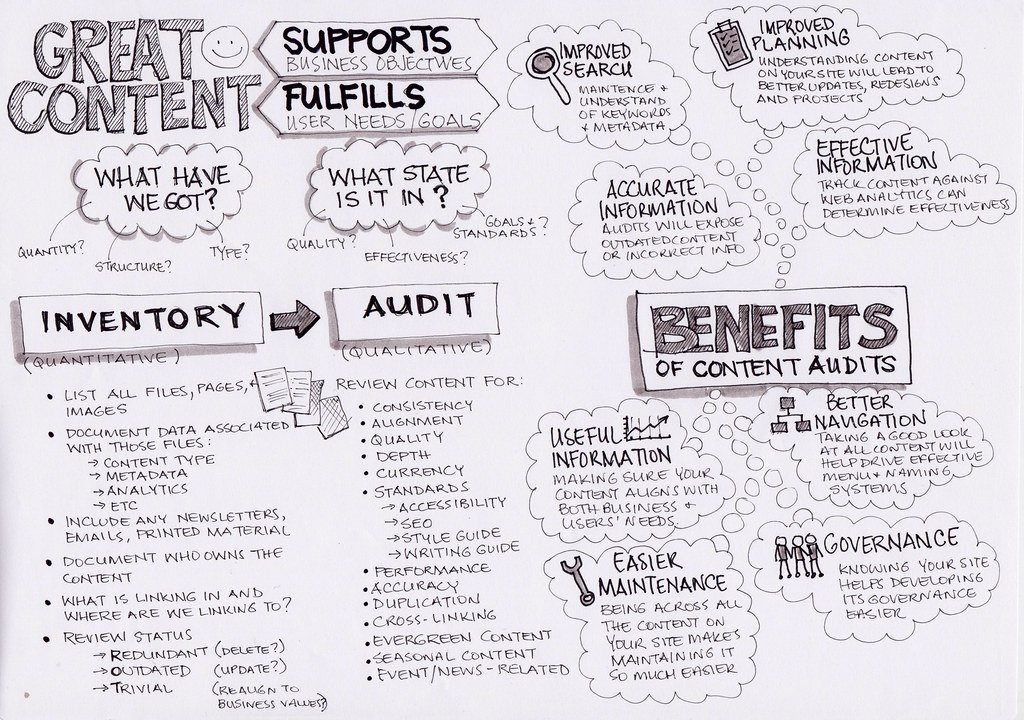 GREAT
CONTENT
SUPPORTS
BUSINESS OBJECTIVES
FULFILLS
USER NEEDS/GOALS
WHAT HAVE
WE GOT?
QUANTITY?
STRUCTURE?
TYPE?
WHAT STATE
IS IT IN?
QUALITY?
EFFECTIVENESS?
GOALS &
STANDARDS?
INVENTORY
(QUANTITATIVE)
• LIST ALL FILES, PAGES, &
IMAGES
• DOCUMENT DATA ASSOCIATED
WITH THOSE FILES:
→ CONTENT TYPE
→ METADATA
→ ANALYTICS
→ ETC
• INCLUDE ANY NEWSLETTERS,
EMAILS, PRINTED MATERIAL
• DOCUMENT WHO OWNS THE
CONTENT
• WHAT IS LINKING IN AND
WHERE ARE WE LINKING TO?
• REVIEW STATUS
→ REDUNDANT (DELETE?)
→ OUTDATED (UPDATE?)
→ TRIVIAL (REALIGN TO
BUSINESS VALUES?)
AUDIT
(QUALITATIVE)
REVIEW CONTENT FOR:
• CONSISTENCY
• ALIGNMENT
• QUALITY
• DEPTH
• CURRENCY
• STANDARDS
→ ACCESSIBILITY
→ SEO
→ STYLE GUIDE
→ WRITING GUIDE
• PERFORMANCE
• ACCURACY
• DUPLICATION
• CROSS-LINKING
• EVERGREEN CONTENT
• SEASONAL CONTENT
• EVENT/NEWS-RELATED
IMPROVED
SEARCH
MAINTENCE &
UNDERSTAND
OF KEYWORDS
& METADATA
IMPROVED
PLANNING
UNDERSTANDING CONTENT
ON YOUR SITE WILL LEAD TO
BETTER UPDATES, REDESIGNS
AND PROJECTS
ACCURATE
INFORMATION
AUDITS WILL EXPOSE
OUTDATED CONTENT
OR INCORRECT INFO
EFFECTIVE
INFORMATION
TRACK CONTENT AGAINST
WEB ANALYTICS CAN
DETERMINE EFFECTIVENESS
BENEFITS
OF CONTENT AUDITS
USEFUL
INFORMATION
MAKING SURE YOUR
CONTENT ALIGNS WITH
BOTH BUSINESS &
USERS' NEEDS
BETTER
NAVIGATION
TAKING A GOOD LOOK
AT ALL CONTENT WILL
HELP DRIVE EFFECTIVE
MENU & NAMING
SYSTEMS
EASIER
MAINTENANCE
BEING ACROSS ALL
THE CONTENT ON
YOUR SITE MAKES
MAINTAINING IT
SO MUCH EASIER
GOVERNANCE
KNOWING YOUR SITE
HELPS DEVELOPING
ITS GOVERNANCE
EASIER